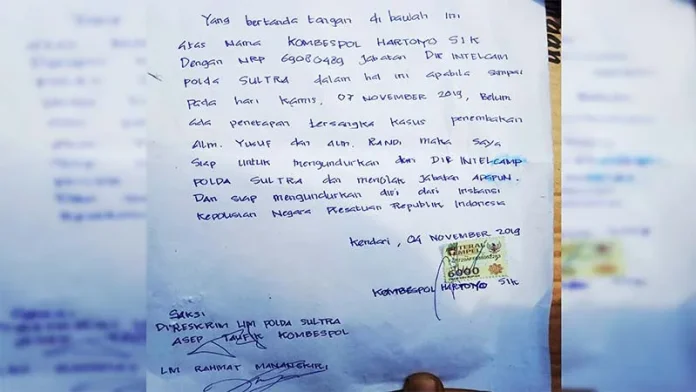 Yang bertanda tangan di bawah ini
Atas Nama KOMBESPOL HARTOYO SIK
Dengan NRP 69080489 Jabatan DIR INTELCAM
POLDA SULTRA dalam hal ini apabila sampai
Pada hari Kamis, 07 NOVEMBER 2019, Belum
ada penetapan tersangka kasus penembakan
Alm. Yusuf dan alm. RANDI maka saya
siap untuk mengundurkan dari DIR INTELCAMP
POLDA SULTRA dan menolak Jabatan APAPUN.
Dan siap mengundurkan diri dari instansi
Kepolisian Negara Presatuan Republik Indonesia
Kendari, 04 NOVEMBER 2019
METERAI
TEMPEL
6000
KOMBESPOL HARTOYO SIK
SAKSI
DIRESKRIM UM POLDA SULTRA
ASEP TAUFIK KOMBESPOL
LM RAHMAT